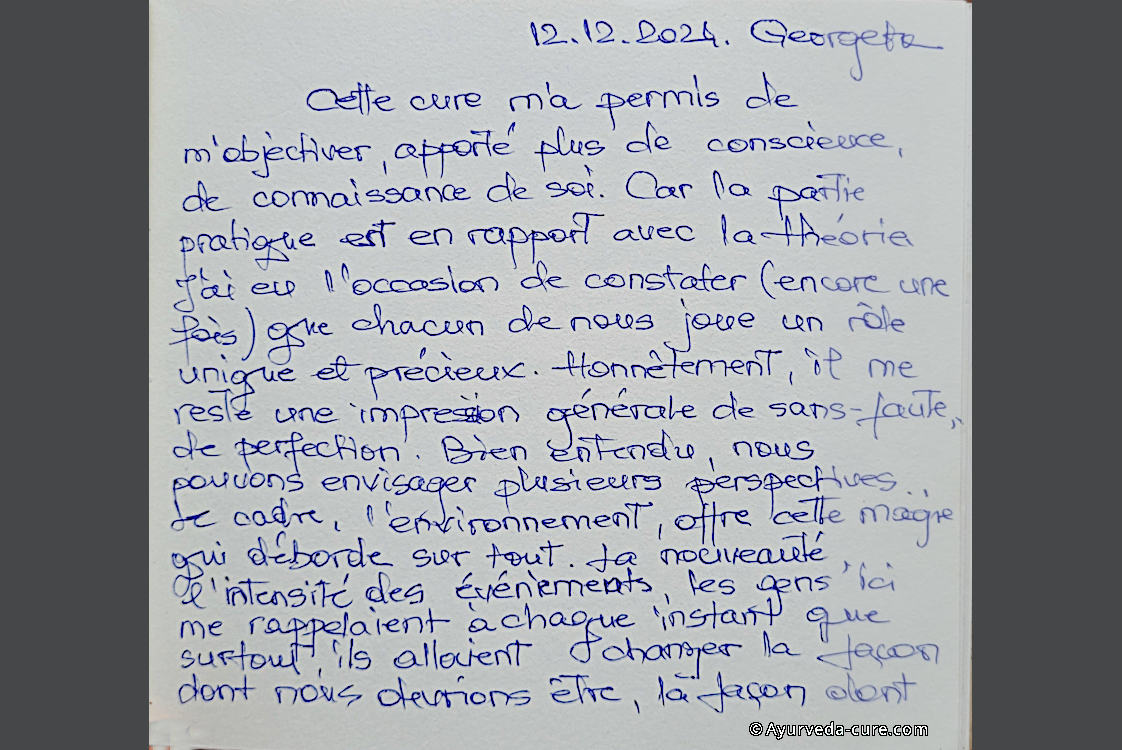 12.12.2024. Georgeta
Cette cure m'a permis de
m'objectiver, apporté plus de conscience,
de connaissance de soi. Car la partie
pratique est en rapport avec la théorie
j'ai eu l'occasion de constater (encore une
fois) que chacun de nous joue un rôle
unique et précieux. Honnêtement, il me
reste une impression générale de sans-faute,
de perfection. Bien entendu, nous
pouvons envisager plusieurs perspectives.
Le cadre, l'environnement, offre cette magie
qui déborde sur tout. La nouveauté,
l'intensité des événements, les gens ici
me rappelaient à chaque instant que
surtout, ils allaient changer la façon
dont nous devrions être, la façon dont
©Ayurveda-cure.com